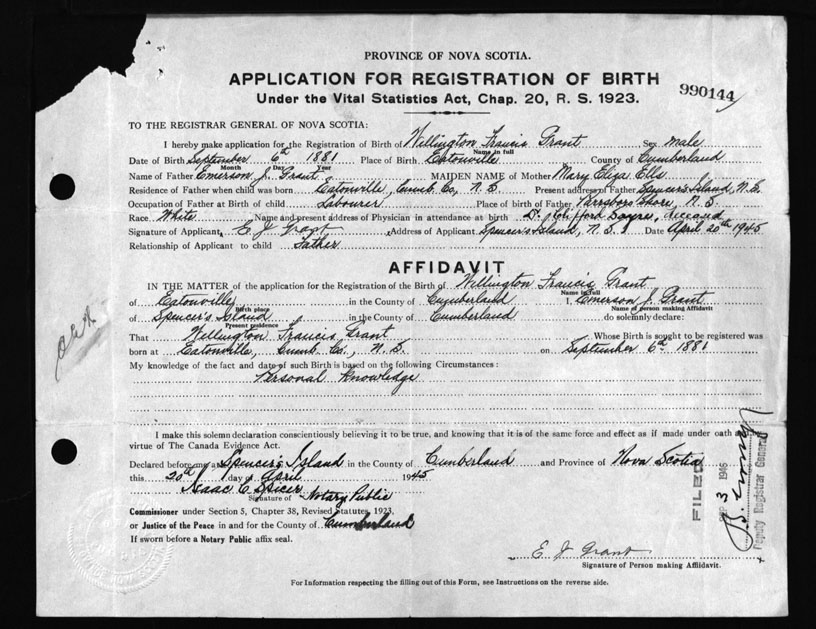 PROVINCE OF NOVA SCOTIA.
APPLICATION FOR REGISTRATION OF BIRTH
990144
Under the Vital Statistics Act, Chap. 20, R. S. 1923.
TO THE REGISTRAR GENERAL OF NOVA SCOTIA:
I hereby make application for the Registration of Birth of Willington Francis Grant Sex Male
Name in full
Date of Birth September 6th 1881 Place of Birth Eatonville County of Cumberland
Month Day Year
Name of Father Emerson J. Grant MAIDEN NAME of Mother Mary Eliza Ells
Residence of Father when child was born Eatonville, Cumb. Co., N. S Present address of Father Spencer's Island, N.S.
Occupation of Father at Birth of child Labourer Place of birth of Father Parrsboro Shore, N. S.
Race White Name and present address of Physician in attendance at birth Dr. Clifford
Signature of Applicant E J Grant Address of Applicant Spencer's Island, N. S. Date April 20th 1945
Relationship of Applicant to child father
AFFIDAVIT
IN THE MATTER of the application for the Registration of the Birth of Willington Francis Grant
Name in full
of Eatonville in the County of Cumberland I, Emerson J. Grant
Birth place Name of person making Affidavit
of Spencer's Island in the County of Cumberland do solemnly declare:
Present residence
That Willington Francis Grant Whose Birth is sought to be registered was
born at Eatonville, Cumb. Co., N. S. on September 6th 1881
My knowledge of the fact and date of such Birth is based on the following Circumstances:
Personal Knowledge
I make this solemn declaration conscientiously believing it to be true, and knowing that it is of the same force and effect as if made under oath
virtue of The Canada Evidence Act.
Declared before me at Spencer's Island in the County of Cumberland and Province of Nova Scotia
this 20th day of April 1945
Isaac C Spicer Notary Public
Signature of
Commissioner under Section 5, Chapter 38, Revised Statutes, 1923,
or Justice of the Peace in and for the County of Cumberland
If sworn before a Notary Public affix seal.
E J Grant
Signature of Person making Affidavit.
For Information respecting the filling out of this Form, see Instructions on the reverse side.
FILED
3 1946
Deputy Registrar General